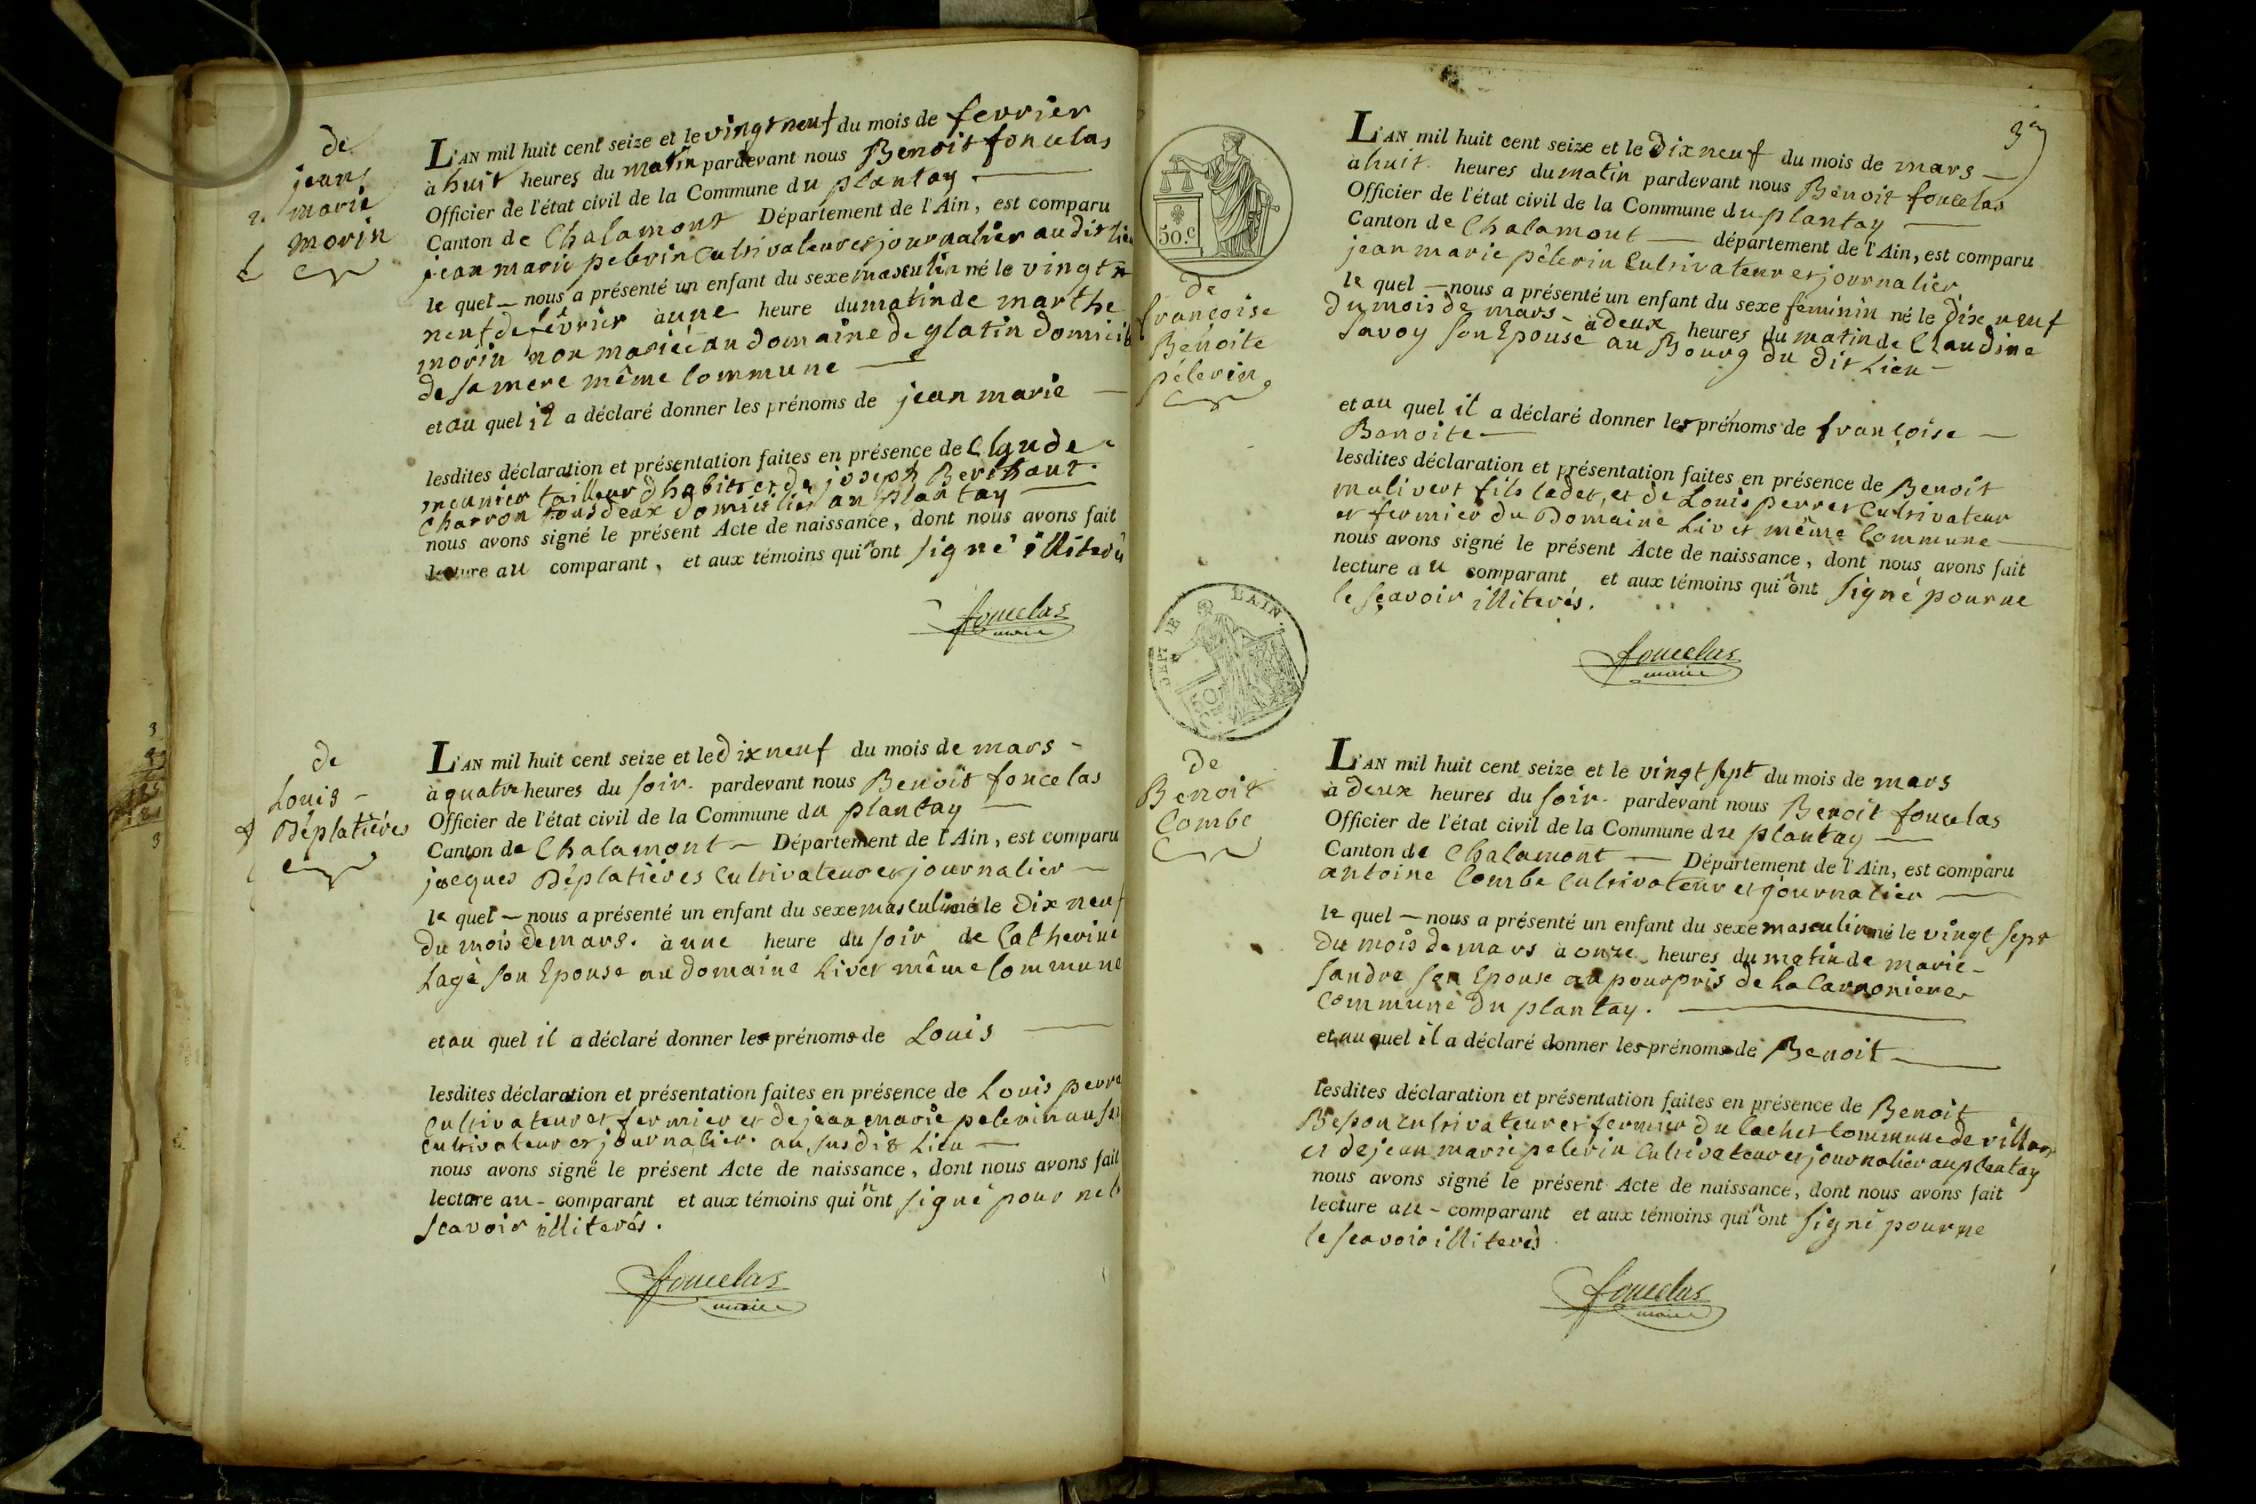 de
jean
marie
morin
L'AN mil huit cent seize et le vingt neuf du mois de fevrier
à huit heures du matin pardevant nous Benoit foncelas
Officier de l'état civil de la Commune du plantay
Canton de Chalamont Département de l'Ain, est comparu
jean marie pelerin Cultivateur et journalier au dit lieu
le quel nous a présenté un enfant du sexe masculin né le vingt
neuf de fevrier à une heure du matin de marthe
morin non mariée au domaine de glatin
de sa mere même Commune
et au quel il a déclaré donner les prénoms de jean marie
lesdites déclaration et présentation faites en présence de Claude
meunier tailleur d'habits et de joseph Berthaut
Charron tous deux domiciliés au plantay
nous avons signé le présent Acte de naissance, dont nous avons fait
lecture au comparant, et aux témoins qui n'ont signé
foncelas
maire
de
Louis
Déplatières
L'AN mil huit cent seize et le dix neuf du mois de mars
à quatre heures du soir pardevant nous Benoit foncelas
Officier de l'état civil de la Commune du plantay
Canton de Chalamont Département de l'Ain, est comparu
jacques Déplatières Cultivateur et journalier
le quel nous a présenté un enfant du sexe masculin né le Dix neuf
du mois de mars à une heure du soir de Catherine
Lagè son Epouse au domaine Livet même Commune
et au quel il a déclaré donner les prénoms de Louis
lesdites déclaration et présentation faites en présence de Louis
Cultivateur et fermier et de jean marie pelerin
Cultivateur et journalier au susdit Lieu
nous avons signé le présent Acte de naissance, dont nous avons fait
lecture au comparant et aux témoins qui n'ont signé pour ne
scavoir illiterés.
foncelas
maire
50.c
DEPT DE L'AIN.
de
françoise
Benoite
pélerin
L'AN mil huit cent seize et le Dix neuf du mois de mars
à huit heures du matin pardevant nous Benoit foncelas
Officier de l'état civil de la Commune du plantay
Canton de Chalamont département de l'Ain, est comparu
jean marie pélerin Cultivateur et journalier
le quel nous a présenté un enfant du sexe feminin né le Dix neuf
du mois de mars à deux heures du matin de Claudine
Savoy son Epouse au Bourg du dit Lieu
et au quel il a déclaré donner les prénoms de françoise
Benoite
lesdites déclaration et présentation faites en présence de Benoit
malivert fils cadet, et de Louis perret Cultivateur
et fermier du Domaine Livet même Commune
nous avons signé le présent Acte de naissance, dont nous avons fait
lecture au comparant et aux témoins qui n'ont signé pour ne
le sçavoir illiterés.
foncelas
maire
de
Benoit
Combe
L'AN mil huit cent seize et le vingt sept du mois de mars
à deux heures du soir pardevant nous Benoit foncelas
Officier de l'état civil de la Commune du plantay
Canton de Chalamont Département de l'Ain, est comparu
antoine Combe Cultivateur et journalier
le quel nous a présenté un enfant du sexe masculin né le vingt sept
du mois de mars à onze heures du matin de marie
Sandre son Epouse au pourpris de la
Commune du plantay.
et au quel il a déclaré donner les prénoms de Benoit
lesdites déclaration et présentation faites en présence de Benoit
Bespou Cultivateur et fermier du Commune de villars
et de jean marie pelerin Cultivateur et journalier au plantay
nous avons signé le présent Acte de naissance, dont nous avons fait
lecture au comparant et aux témoins qui n'ont signé pour ne
le scavoir illiterés
foncelas
maire